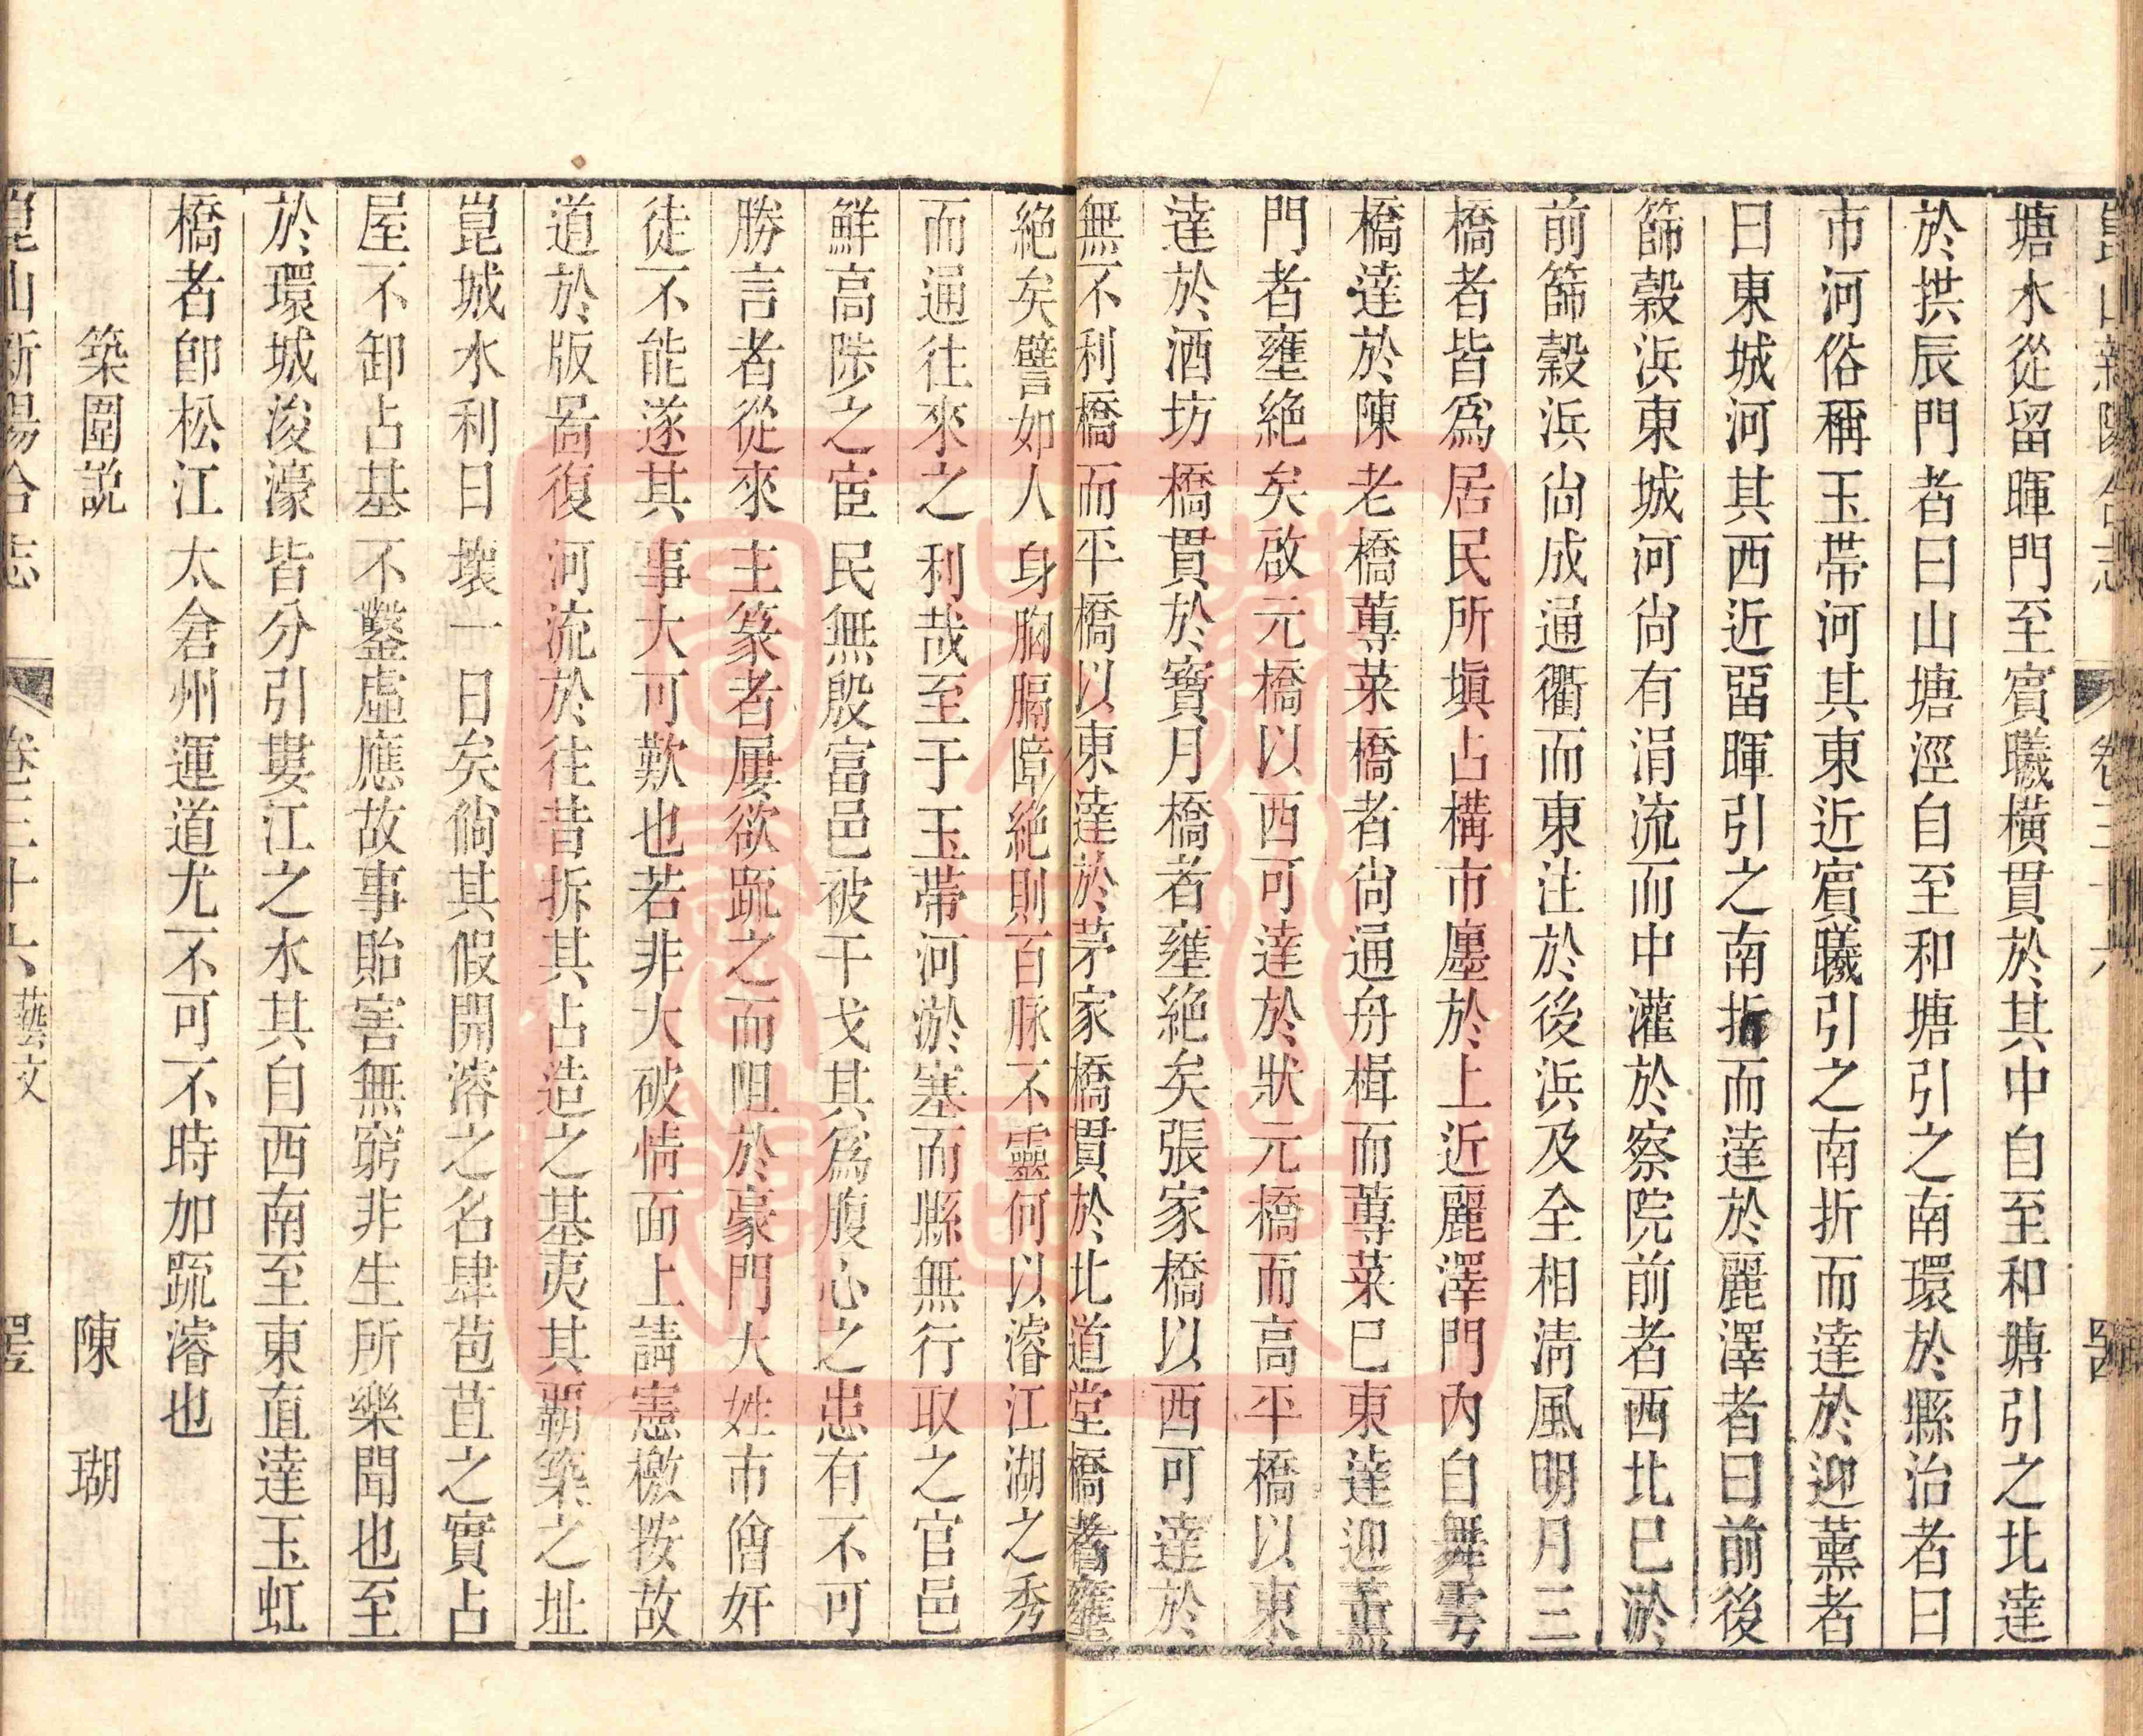 崑山新陽合志 卷三十六
塘水從留暉門至賓曦橫貫於其中自至和塘引之北達
於拱辰門者曰山塘涇自至和塘引之南環於縣治者曰
市河俗稱玉帶河其東近賓曦引之南折而達於迎薰者
曰東城河其西近畱暉引之南折而達於麗澤者曰前後
篩穀浜東城河尙有涓流而中灌於察院前者西北已淤
前篩穀浜尙成通衢而東注於後浜及全相淸風明月三
橋者皆爲居民所塡占構市廛於上近麗澤門內自舞雩
橋達於陳老橋蓴菜橋者尙通舟楫而蓴菜已東達迎薰
門者壅絶矣啟元橋以西可達於狀元橋而高平橋以東
達於酒坊橋貫於寶月橋者壅絶矣張家橋以西可達於
無不利橋而平橋以東達於茅家橋貫於北道堂橋者壅
絶矣譬如人身胸膈障絶則百脉不靈何以濬江湖之秀
而通往來之利哉至于玉帶河淤塞而縣無行取之官邑
鮮高陟之宦民無殷富邑被干戈其爲腹心之患有不可
勝言者從來主篆者屢欲疏之而阻於豪門大姓市儈奸
徒不能遂其事大可歎也若非大破情面上請憲檄按故
道於版啚復河流於往昔拆其占造之基夷其霸築之址
崑城水利日壞一日矣倘其假開濬之名肆苞苴之實占
屋不卸占基不鑿虛應故事貽害無窮非生所樂聞也至
於環城浚濠皆分引婁江之水其自西南至東直達玉虹
橋者卽松江太倉州運道尤不可不時加疏濬也
築圍説 陳瑚
崑山新陽合志 卷三十六 藝文